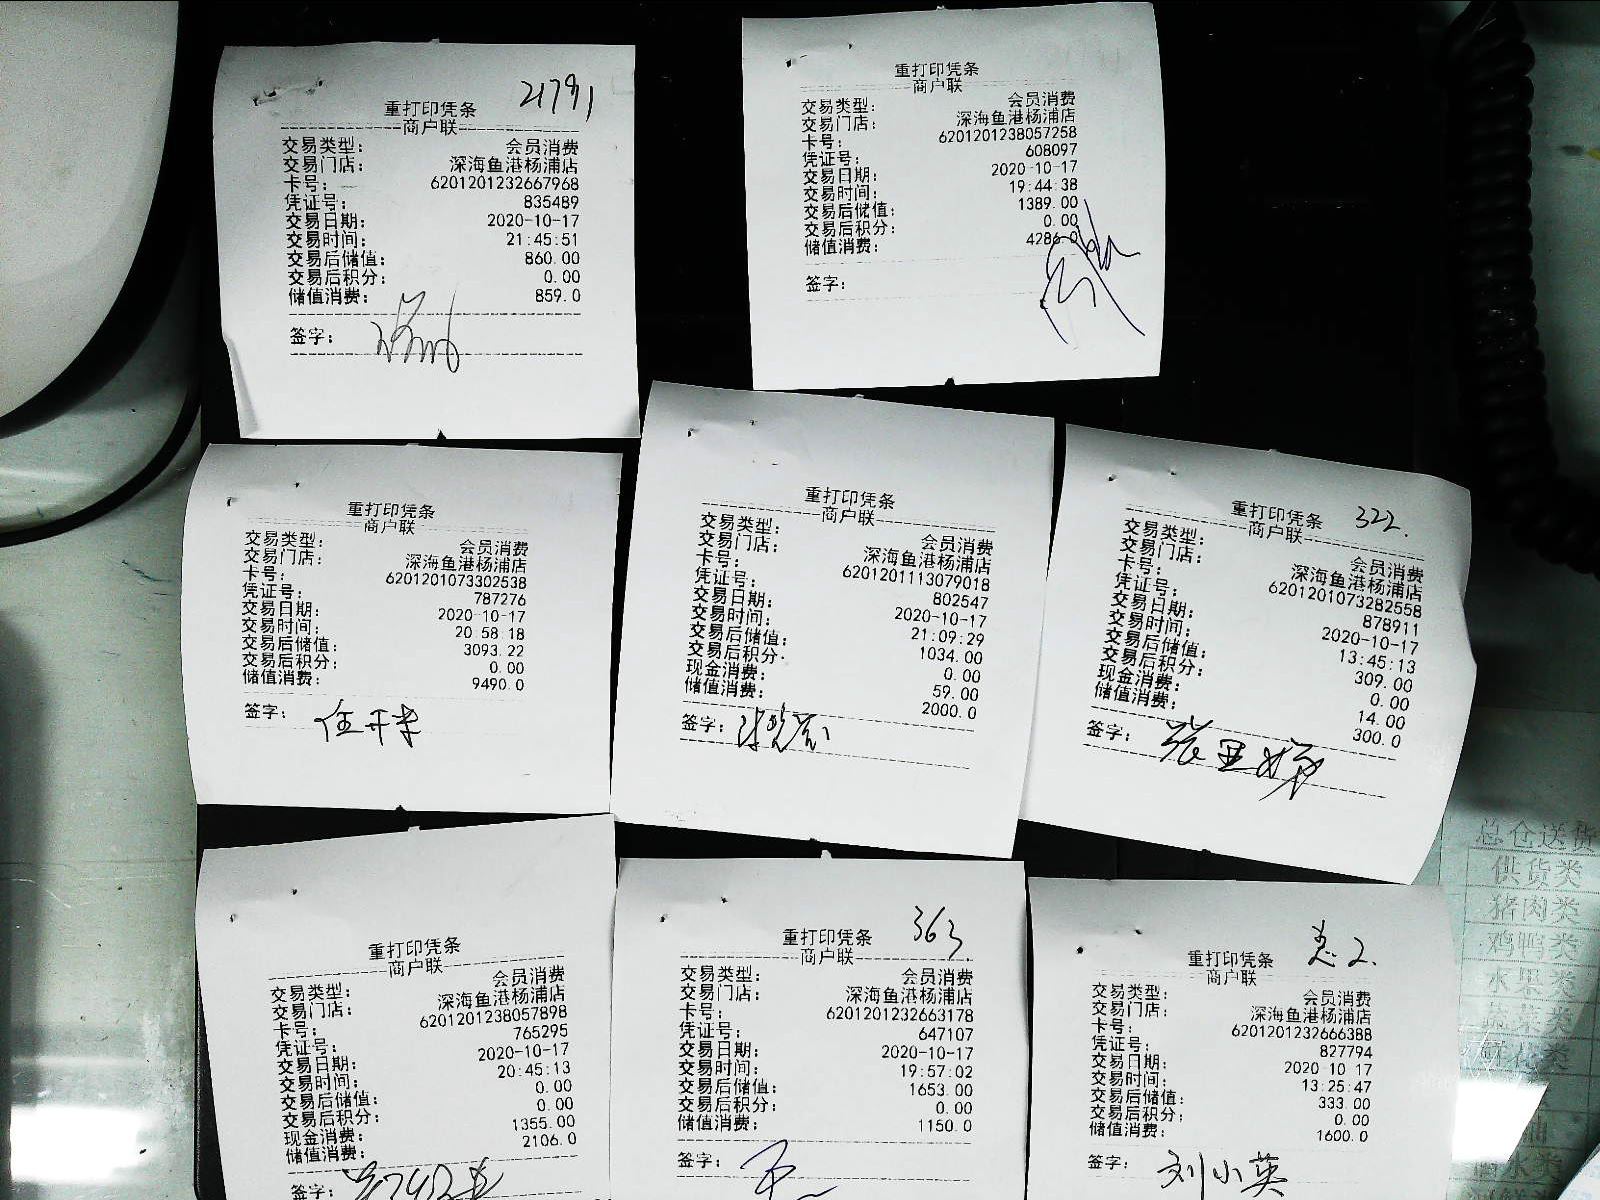 重打印凭条 21791
商户联
交易类型： 会员消费
交易门店： 深海鱼港杨浦店
卡号： 6201201232667968
凭证号： 835489
交易日期： 2020-10-17
交易时间： 21:45:51
交易后储值： 860.00
交易后积分： 0.00
储值消费： 859.0
签字：
重打印凭条
商户联
交易类型： 会员消费
交易门店： 深海鱼港杨浦店
卡号： 6201201238057258
凭证号： 608097
交易日期： 2020-10-17
交易时间： 19:44:38
交易后储值： 1389.00
交易后积分： 0.00
储值消费： 4286.0
签字：
重打印凭条
商户联
交易类型： 会员消费
交易门店： 深海鱼港杨浦店
卡号： 6201201073302538
凭证号： 787276
交易日期： 2020-10-17
交易时间： 20:58:18
交易后储值： 3093.22
交易后积分： 0.00
储值消费： 9490.0
签字： 任开来
重打印凭条
商户联
交易类型： 会员消费
交易门店： 深海鱼港杨浦店
卡号： 6201201113079018
凭证号： 802547
交易日期： 2020-10-17
交易时间： 21:09:29
交易后储值： 1034.00
交易后积分： 0.00
现金消费： 59.00
储值消费： 2000.0
签字：
重打印凭条 322.
商户联
交易类型： 会员消费
交易门店： 深海鱼港杨浦店
卡号： 6201201073282558
凭证号： 878911
交易日期： 2020-10-17
交易时间： 13:45:13
交易后储值： 309.00
交易后积分： 0.00
现金消费： 14.00
储值消费： 300.0
签字： 张亚娣
重打印凭条
商户联
交易类型： 会员消费
交易门店： 深海鱼港杨浦店
卡号： 6201201238057898
凭证号： 765295
交易日期： 2020-10-17
交易时间： 20:45:13
交易后储值： 0.00
交易后积分： 0.00
现金消费： 1355.00
储值消费： 2106.0
签字：
重打印凭条 363.
商户联
交易类型： 会员消费
交易门店： 深海鱼港杨浦店
卡号： 6201201232663178
凭证号： 647107
交易日期： 2020-10-17
交易时间： 19:57:02
交易后储值： 1653.00
交易后积分： 0.00
储值消费： 1150.0
签字：
重打印凭条 总2.
商户联
交易类型： 会员消费
交易门店： 深海鱼港杨浦店
卡号： 6201201232666388
凭证号： 827794
交易日期： 2020-10-17
交易时间： 13:25:47
交易后储值： 333.00
交易后积分： 0.00
储值消费： 1600.0
签字： 刘小英
总仓送货
供货类
猪肉类
鸡鸭类
水果类
蔬菜类